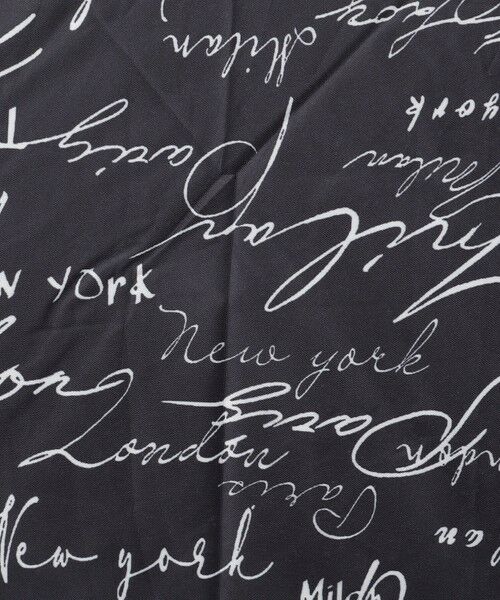 Milan
york
Paris
Milan
Milan
York
New york
Paris
London
Paris
New york
Milan